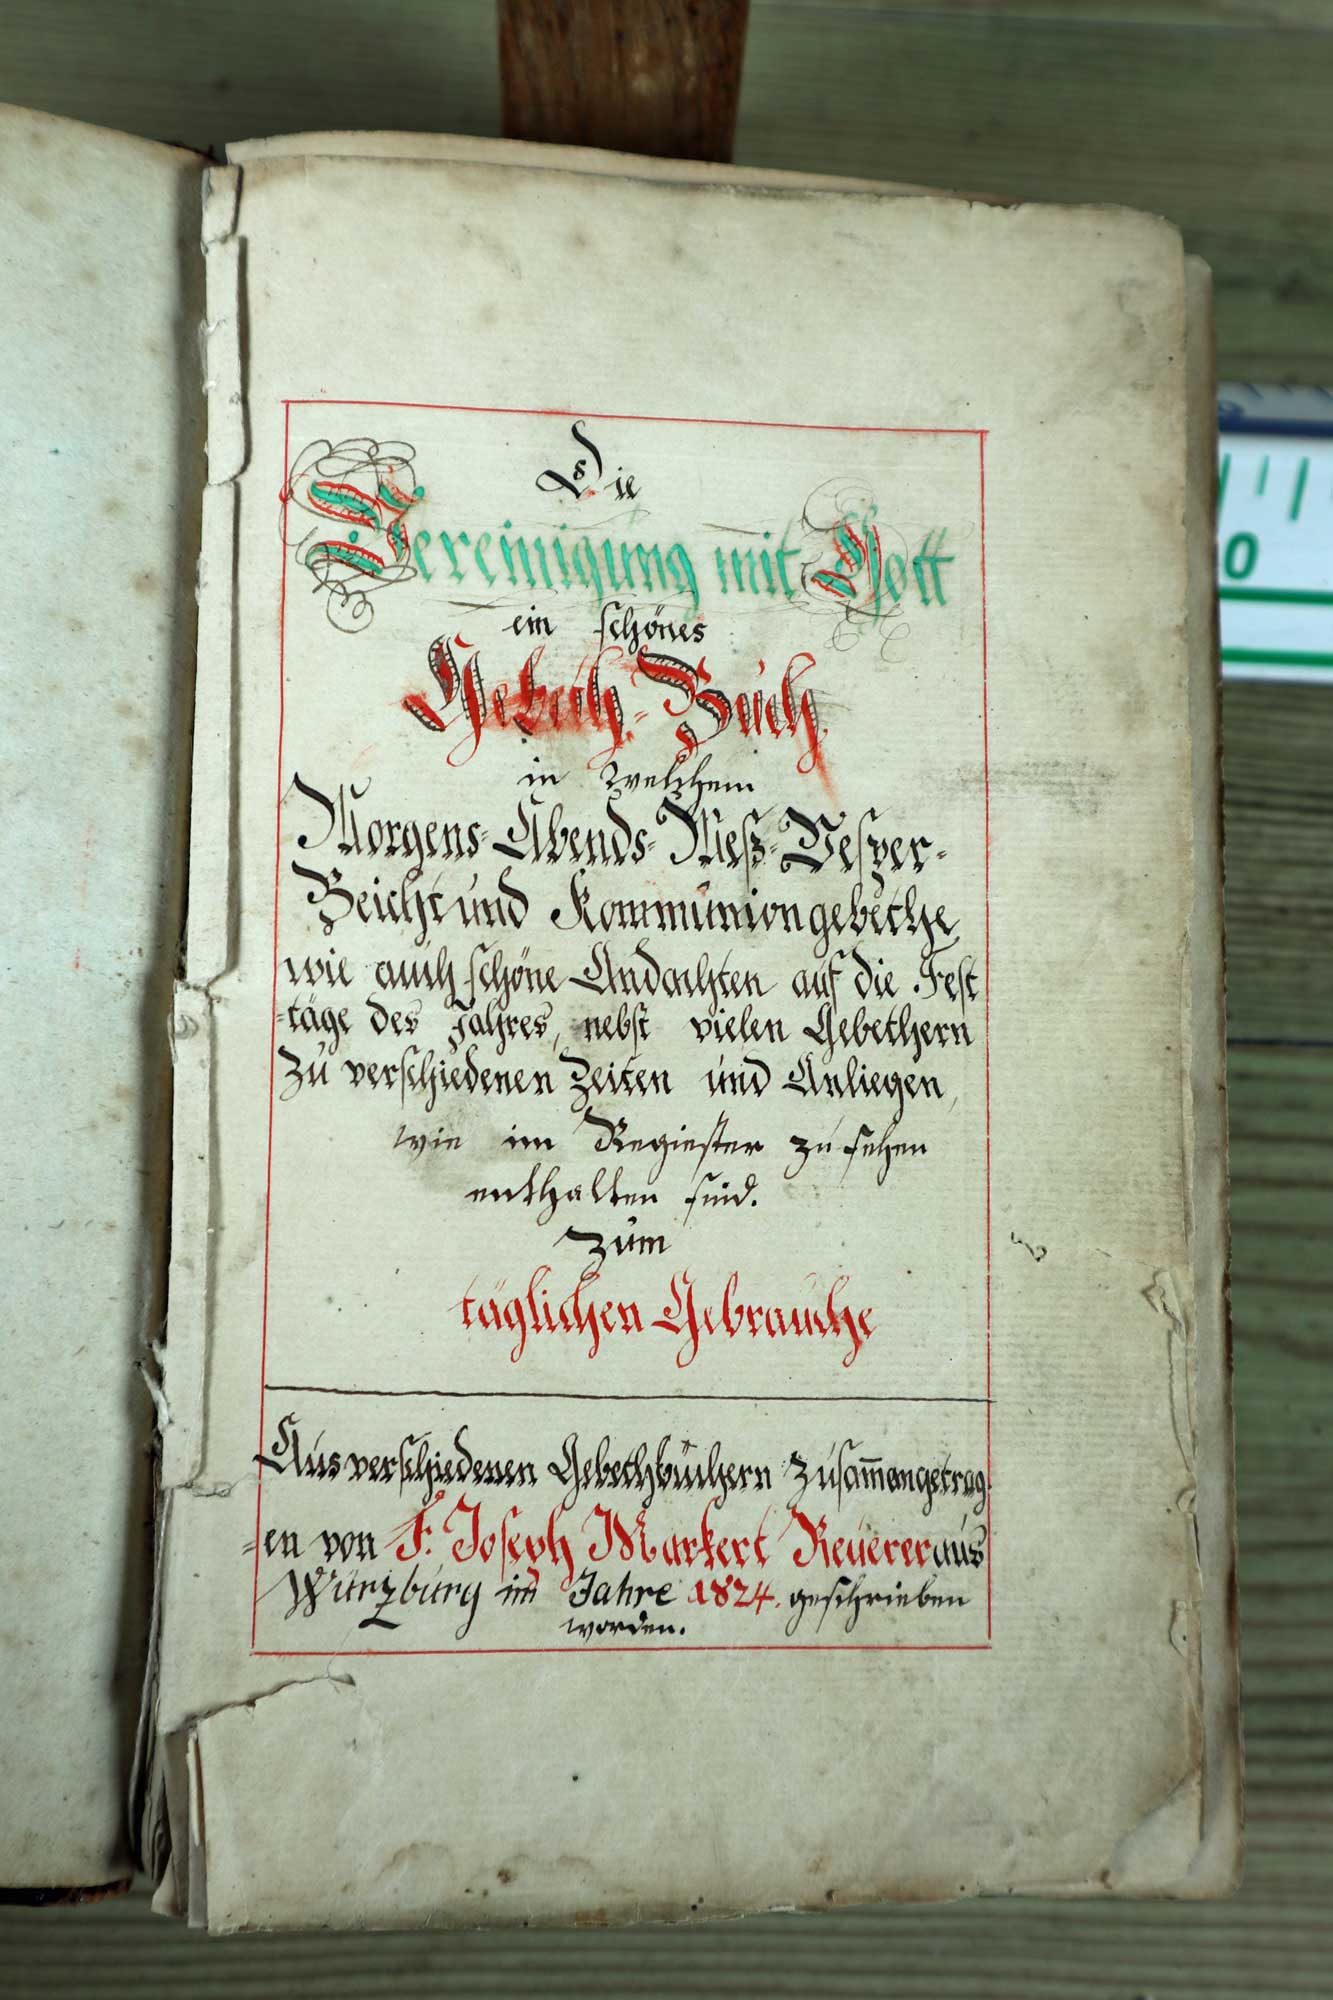 Die
Vereinigung mit Gott
ein schönes
Gebeth-Buch
in welchem
Morgens- Abends- Meß- Vesper-
Beicht und Kommuniongebethe
wie auch schöne Andachten auf die Fest
-täge des Jahres, nebst vielen Gebethern
zu verschiedenen Zeiten und Anliegen,
wie im Regiester zu sehen
enthalten sind.
Zum
täglichen Gebrauche
Aus verschiedenen Gebethbüchern zusam̅angetrag
-en von F. Joseph Markert Reuerer aus
Würzburg im Jahre 1824. geschrieben
worden.
0